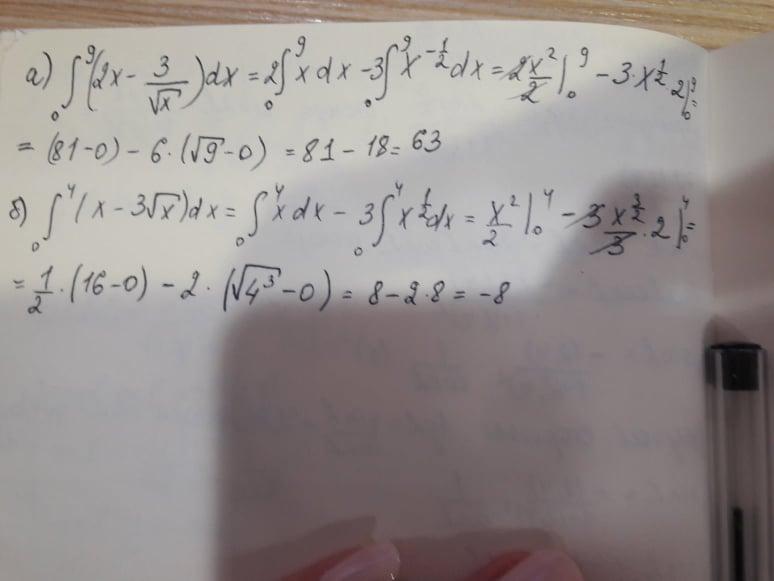 а) ∫₀⁹(2x - 3/√x)dx = 2∫₀⁹x dx - 3∫₀⁹x^(-1/2)dx = 2x²/2|₀⁹ - 3·x^(1/2)·2|₀⁹ =
= (81-0) - 6·(√9-0) = 81-18 = 63
б) ∫₀⁴(x - 3√x)dx = ∫₀⁴x dx - 3∫₀⁴x^(1/2)dx = x²/2|₀⁴ - 3x^(3/2)/3·2|₀⁴ =
= 1/2·(16-0) - 2·(√4³-0) = 8-2·8 = -8